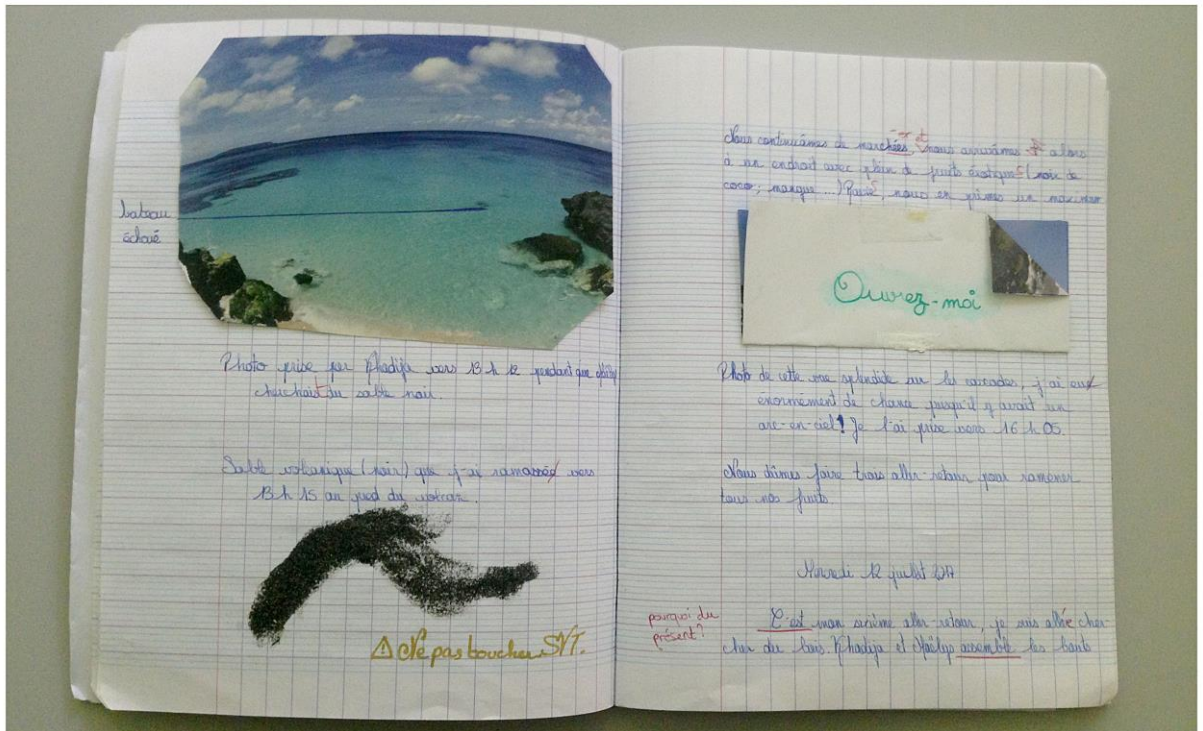 bateau
échoué
Photo prise par Khadija vers 13 h 12 pendant que Maëlys
cherchait du sable noir.
Sable volcanique (noir) que j'ai ramassée vers
13 h 15 au pied du volcan.
⚠ Ne pas toucher SVP.
Nous continuâmes de marchées, nous arrivâmes alors
à un endroit avec plein de fruits exotiques (noix de
coco; mangue ...) Ravies, nous en prîmes un maximum
Ouvrez-moi
Photo de cette vue splendide sur les cascades, j'ai eux
énormément de chance puisqu'il y avait un
arc-en-ciel! Je l'ai prise vers 16 h 05.
Nous dûmes faire trois aller-retour pour ramener
tous nos fruits.
Mercredi 12 juillet 2017
pourquoi du
présent?
C'est mon sixième aller-retour, je suis allée cher-
cher du bois. Khadija et Maëlys assemble les bouts